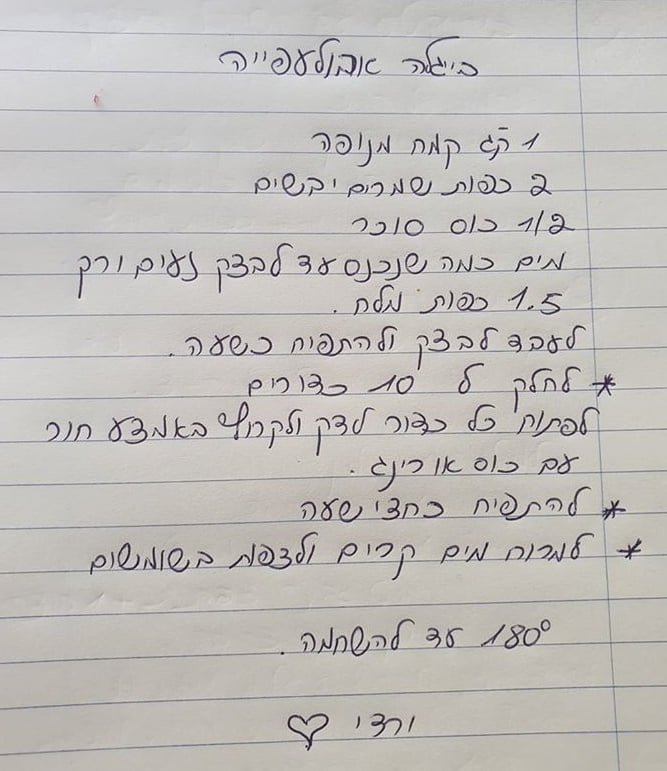 בייגלה אבולעפייה
1 קג קמח מנופה
2 כפות שמרים יבשים
1/2 כוס סוכר
מים כמה שנכנס עד לבצק נעים ורק
1.5 כפות מלח.
לעבד לבצק ולהתפיח כשעה.
* לחלק ל 10 כדורים
לפתוח כל כדור לדק ולקרוץ באמצע חור
עם כוס או רינג.
* להתפיח כחצי שעה
* למרוח מים קרים ולצפות בשומשום
180° עד להשחמה.
ורדי ♡